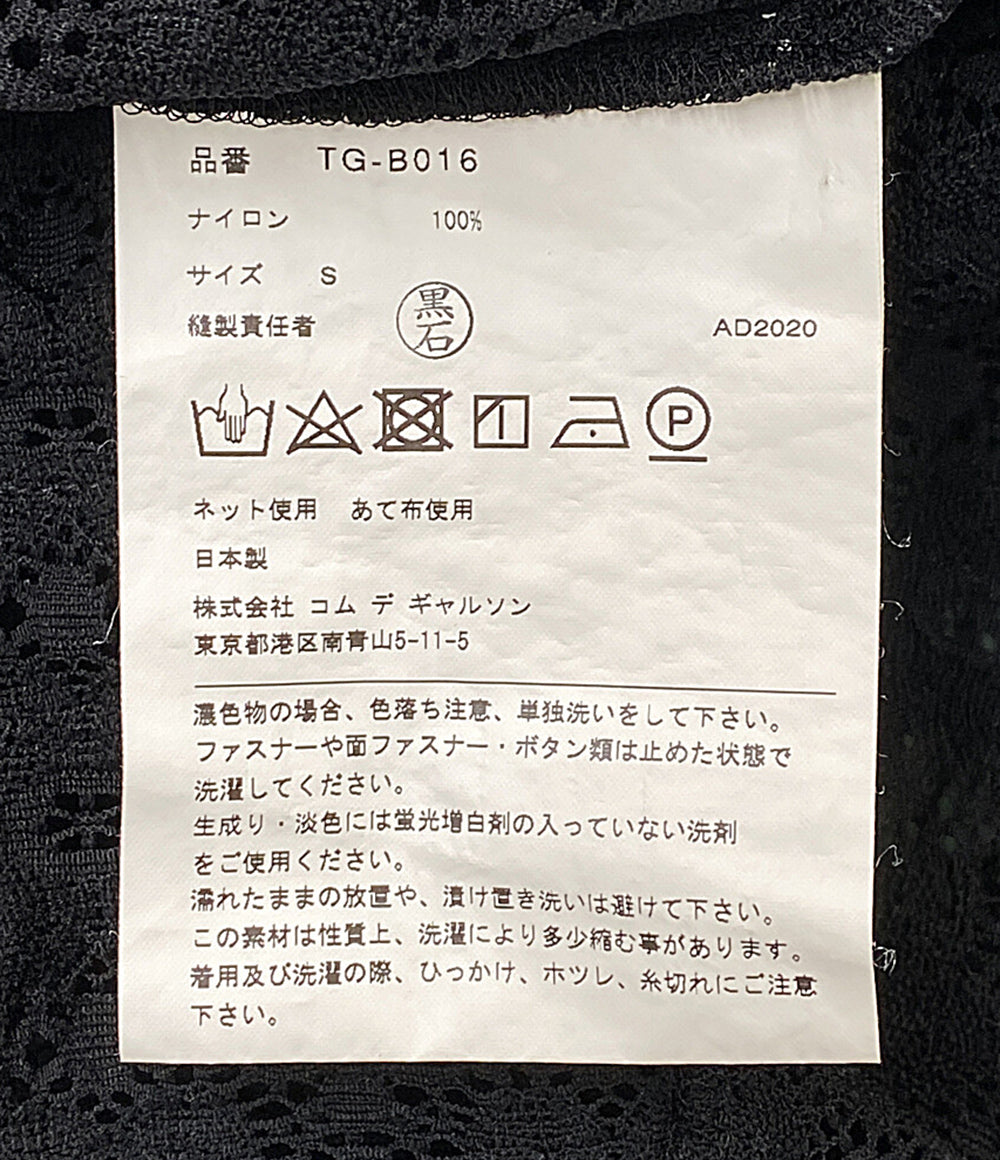 品番 TG-B016
ナイロン 100%
サイズ S
縫製責任者 黒石 AD2020
P
ネット使用 あて布使用
日本製
株式会社 コム デ ギャルソン
東京都港区南青山5-11-5
濃色物の場合、色落ち注意、単独洗いをして下さい。
ファスナーや面ファスナー・ボタン類は止めた状態で
洗濯してください。
生成り・淡色には蛍光増白剤の入っていない洗剤
をご使用ください。
濡れたままの放置や、漬け置き洗いは避けて下さい。
この素材は性質上、洗濯により多少縮む事があります。
着用及び洗濯の際、ひっかけ、ホツレ、糸切れにご注意
下さい。